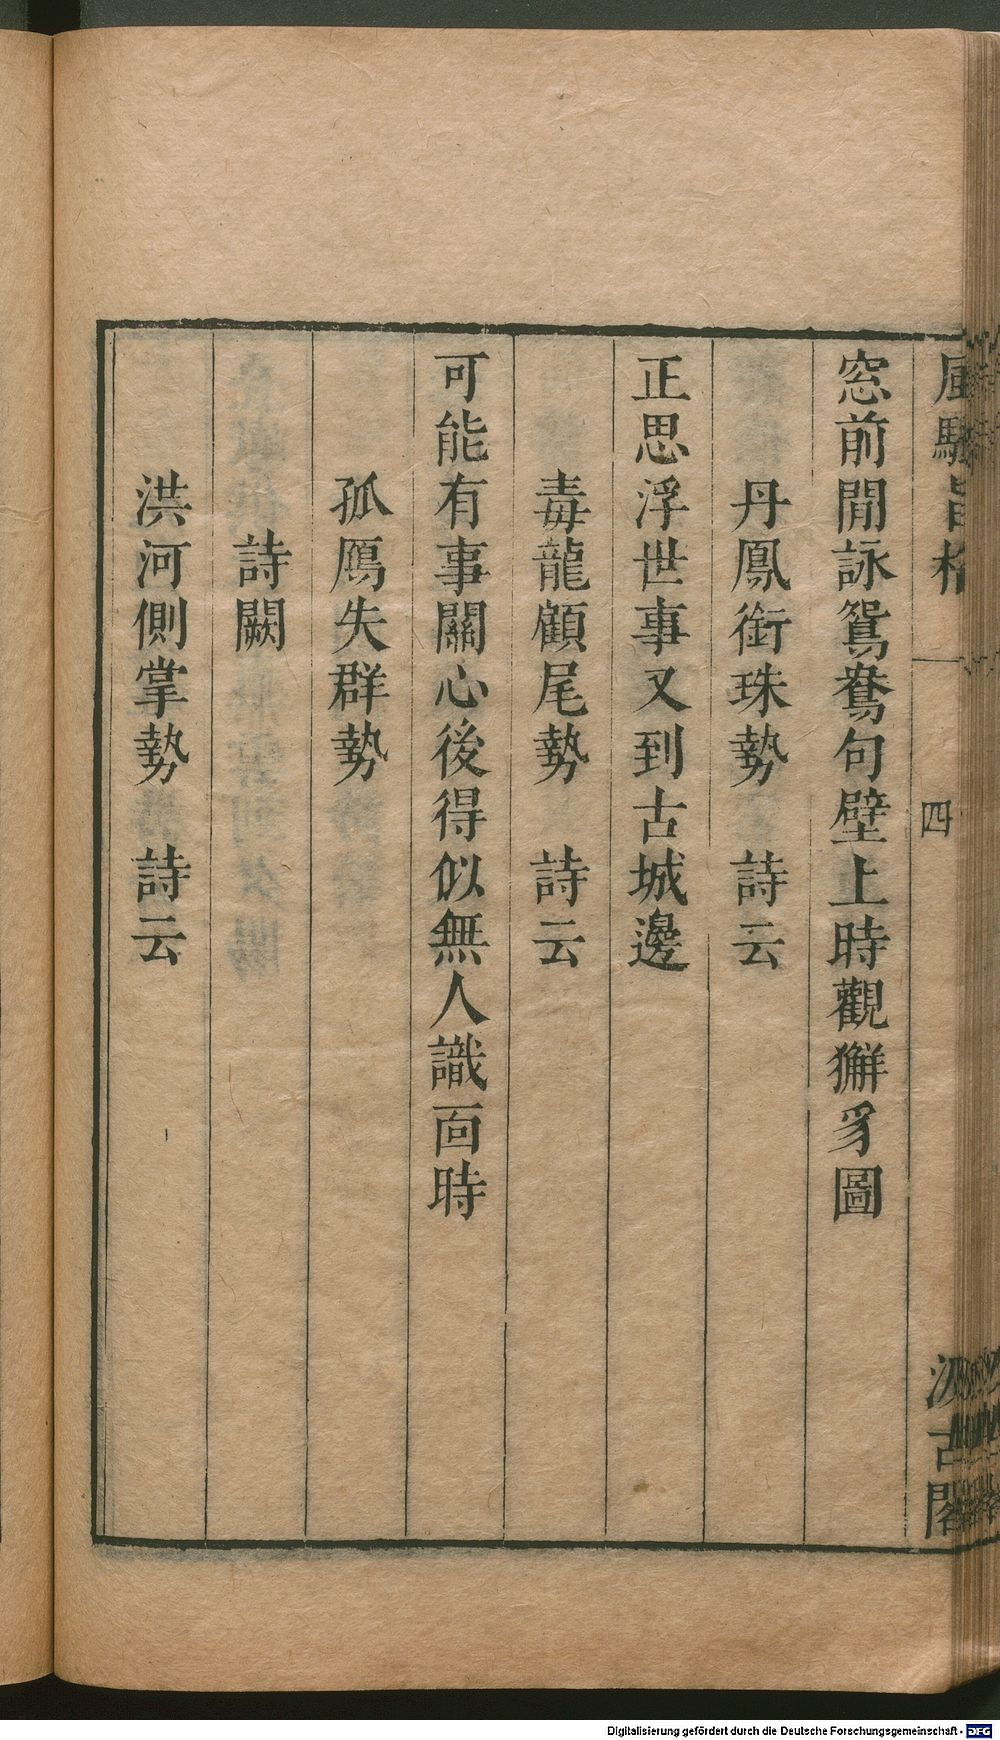 風騷旨格
四
汲古閣
窓前閒詠鴛鴦句壁上時觀獬豸圖
丹鳳銜珠勢　詩云
正思浮世事又到古城邊
毒龍顧尾勢　詩云
可能有事關心後得似無人識面時
孤鴈失群勢
詩闕
洪河側掌勢　詩云
Digitalisierung gefördert durch die Deutsche Forschungsgemeinschaft - DFG